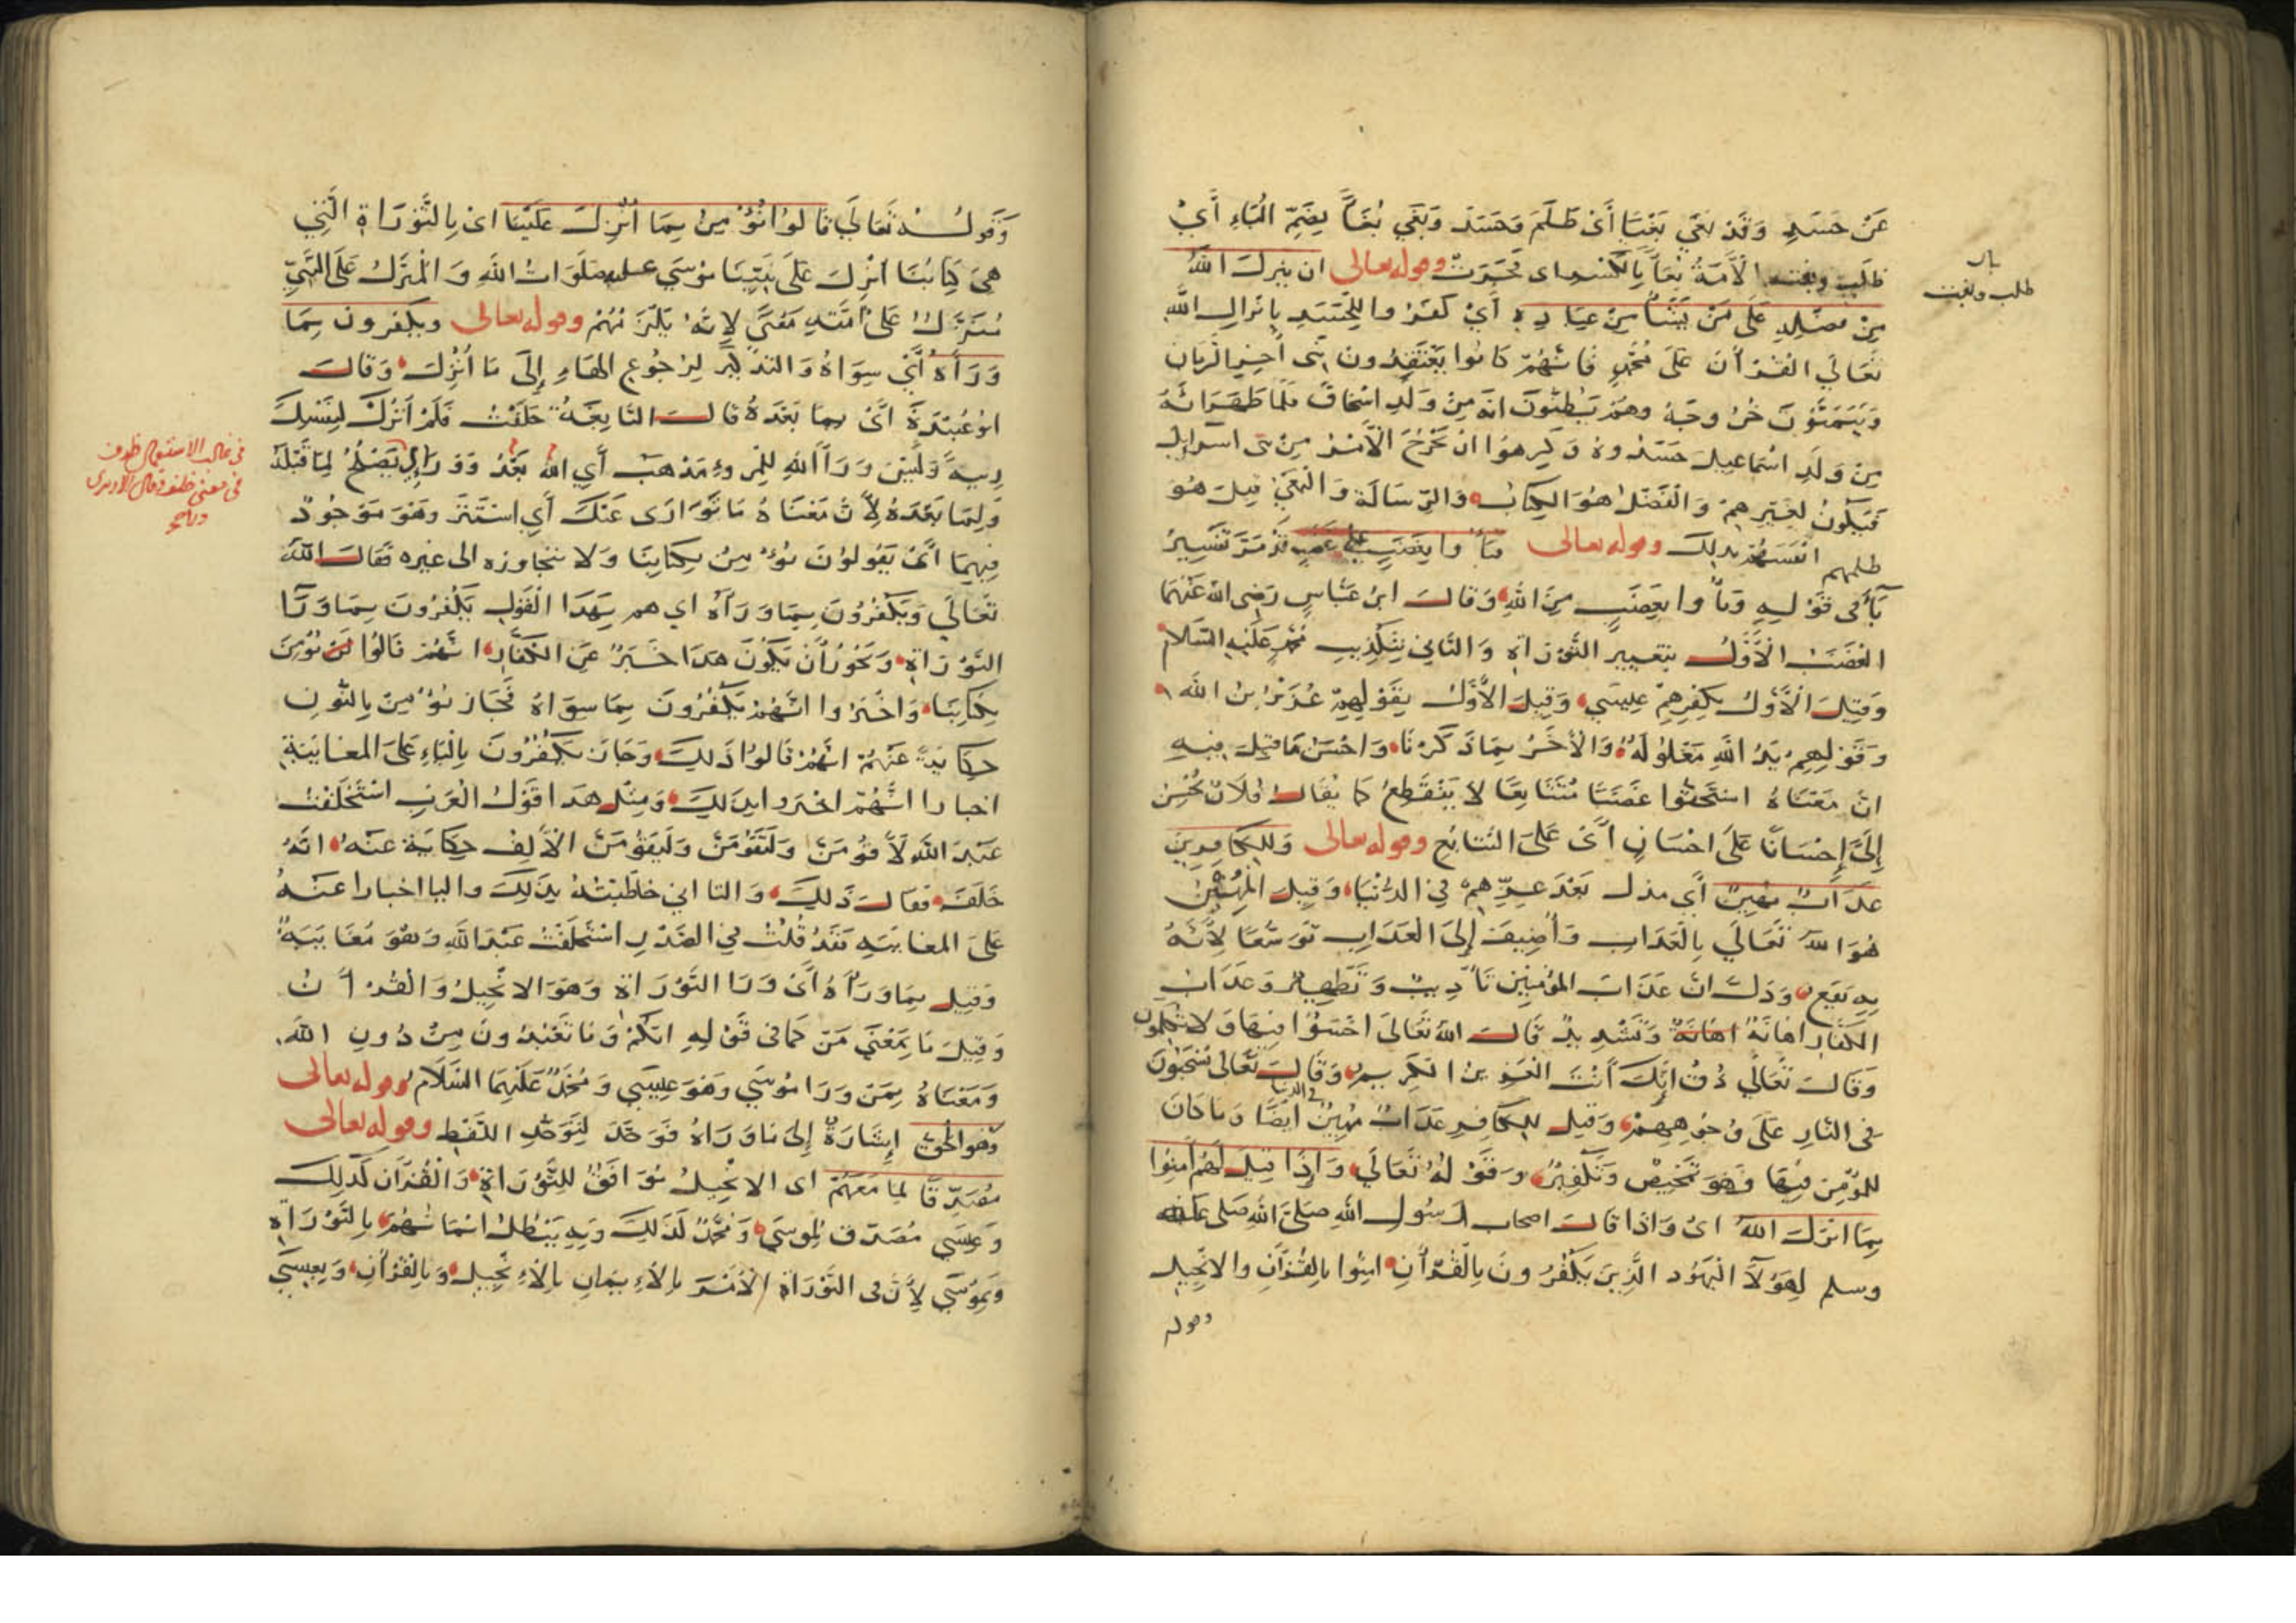 عَنْ حَسَدٍ وَقَدْ بَغَى بَغْيًا أَىْ ظَلَمَ وَحَسَدَ وَبَغَى بُغَاءً بِضَمِّ الْبَاءِ أَيْ
طلب وبغت الْأَمَةُ بِغَاءً بِالكسر اى فَجَرَتْ وقوله تعالى ان ينزل اللهُ
مِنْ فضله عَلَى مَنْ يَشَاءُ مِنْ عِبَادِهِ أَيْ كَفَرُوا لِحَسَدِ بِانزالِ اللهِ
تَعَالَى الْقُرْأَنَ عَلَى مُحَمَّدٍ فَاِنَّهُمْ كَانُوا يَعْتَقِدُونَ نَبِى أخِرِ الزمانِ
وَيَتَمَنَّوْنَ خُرُوجَهُ وَهُمْ يَظُنُّونَ انَّهُ مِنْ وَلَدِ اسْحَاقَ فَلَمَّا ظَهَرَ اَنَّهُ
مِنْ وَلَدِ اسْمَاعِيلَ حَسَدُوهُ وَكَرِهُوا انْ يَخْرُجَ الْأَمْرُ مِنْ بَنِى اسرايل
فَيَكُونُ لِغَيْرِهِمْ وَالْفَضْلُ هُوَ الْكِتَابُ وَالرِّسَالَةُ وَالْبَغْيُ قِيلَ هُوَ
ظلمهم انْفُسَهُمْ بذلك وقوله تعالى فَبَاءُوا بِغَضَبٍ عَلَى غَضَبٍ قَدْ مَرَّ تَفْسِيرُ
بَاءَ فِى قَوْلِهِ وَبَاءُوا بِغَضَبٍ مِنَ اللهِ وَقَالَ ابنُ عَبَّاسٍ رَضِىَ اللهُ عَنْهُمَا
الْغَضَبُ الْأَوَّلُ بتغيير التَّوْرَاةِ وَالثَّانِي بِتَكْذِيبِ مُحَمَّدٍ عَلَيْهِ السَّلَام
وَقِيلَ الْأَوَّلُ بِكُفْرِهِمْ عِيسَى وَقِيلَ الْأَوَّلُ بِقَوْلِهِمْ عُزَيْرُ بْنُ اللهِ
وَقَوْلِهِمْ يَدُ اللهِ مَغْلُولَةٌ وَالْأَخَرُ بِمَا ذَكَرْنَا وَاحْسَنُ مَا قِيلَ فِيهِ
انَّ مَعْنَاهُ اسْتَحَقُّوا غَضَبًا مُتَتَابِعًا لَا يَنْقَطِعُ كَمَا يُقَالُ فُلَانٌ يُحْسِنُ
إِلَىَّ إِحْسَانًا عَلَى احْسَانٍ أَىْ عَلَى التَّتَابُعِ وقوله تعالى وَلِلْكَافِرِينَ
عَذَابٌ مُهِينٌ أَي مذل بَعْدَ عِزِّهِمْ فِي الدُّنْيَا وَقِيلَ الْمُهِينُ
هُوَ اللهُ تَعَالَى بِالْعَذَابِ وَأُضِيفَ إِلَى الْعَذَابِ تَوَسُّعًا لِأَنَّهُ
بِهِ يَقَعُ وَذَلِكَ انَّ عَذَابَ الْمُؤْمِنِينَ تَأْدِيبٌ وَتَطْهِيرٌ وَعَذَابَ
الْكُفَّارِ اهَانَةٌ اهَانَةٌ وَتَشْدِيدٌ قَالَ اللهُ تَعَالَى اخْسَؤُا فِيهَا وَلَا تُكَلِّمُونِ
وَقَالَ تَعَالَى ذُقْ إِنَّكَ أَنْتَ الْعَزِيزُ الْكَرِيمُ وَقَالَ تَعَالَى يُسْحَبُونَ
فِى النَّارِ عَلَى وُجُوهِهِمْ وَقِيلَ لِلْكَافِرِ عَذَابٌ مُهِينٌ فى الدنيا ايْضًا وَمَا كَانَ
لِلْمُؤْمِنِ فِيهَا فَهُوَ تَمْحِيصٌ وَتَكْفِيرٌ وَقَوْلُهُ تَعَالَى وَإِذَا قِيلَ لَهُمْ أَمِنُوا
بِمَا انْزَلَ اللهُ اىْ وَاذَا قَالَ اصحاب رَسُولِ اللهِ صَلَّى اللهُ صَلَى عليه
وسلم لِهَؤُلَاءِ الْيَهُودِ الَّذِينَ يَكْفُرُونَ بِالْقُرْأَنِ امِنُوا بِالْقُرْأَنِ وَالانجِيلِ
وقوله
بيان
طلب وبغت
وَقَوْلُهُ تَعَالَى قَالُوا نُؤْمِنُ بِمَا أُنْزِلَ عَلَيْنَا اىْ بِالتَّوْرَاةِ الَّتِي
هِىَ كِتَابُنَا أُنْزِلَ عَلَى نَبِيِّنَا مُوسَى عليه صَلَوَاتُ اللهِ وَالْمُنَزَّلُ عَلَى النَّبِيِّ
مُنَزَّلٌ عَلَى امَّتِهِ مَعْنًى لِاَنَّهُ يَلْزَمُهُمْ وقوله تعالى ويكفرون بِمَا
وَرَاءَهُ أَيْ سِوَاهُ وَالتذكير لِرُجُوعِ الْهَاءِ إِلَى مَا أُنْزِلَ وَقَالَ
ابُو عُبَيْدَةَ اىْ بِمَا بَعْدَهُ قَالَ النَّابِغَةُ حَلَفْتُ فَلَمْ اَتْرُكْ لِنَفْسِكَ
رِيبَةً وَلَيْسَ وَرَاءَ اللهِ لِلْمَرْءِ مَذْهَبٌ أَيِ الله بَعْدُ وَوَرَاءِ يَصْلُحُ لِمَا قَبْلَهُ
وَلِمَا بَعْدَهُ لِأَنَّ مَعْنَاهُ مَا تَوَارَى عَنْكَ أَيِ اسْتَتَرَ وَهُوَ مَوْجُودٌ
فِيهِمَا اىْ يَقُولُونَ نُؤْمِنُ بِكِتَابِنَا وَلَا نتجاوزه الى غيره فَقَالَ اللهُ
تَعَالَى وَيَكْفُرُونَ بِمَا وَرَاءَهُ اى هم بِهَذَا الْقَوْلِ يَكْفُرُونَ بِمَا وَرَاءَ
التَّوْرَاةِ وَيَجُوزُ أَنْ يَكُونَ هَذَا خَبَرٌ عَنِ الْكُفَّارِ اَنَّهُمْ قَالُوا لَنْ نُؤْمِنَ
بِكِتَابِنَا وَاخْبَرُوا انَّهُمْ يَكْفُرُونَ بِمَا سِوَاهُ فَجَازَ نُؤْمِنُ بِالنُّونِ
حِكَايَةً عَنْهُمْ انَّهُمْ قَالُوا ذَلِكَ وَجَازَ يَكْفُرُونَ بِالْيَاءِ عَلَى المغايبة
اخبارا انَّهُمْ اخبروا بذلك وَمِثْلُ هَذَا قَوْلُ الْعَرَبِ اسْتَحْلَفْتُ
عَبْدَ اللهِ لَأَقُومَنَّ وَلَتَقُومَنَّ وَلَيَقُومَنَّ الْأَلِفُ حِكَايَةٌ عَنْهُ انَّهُ
حَلَفَ فَقَالَ ذَلِكَ وَالتا اني خَاطَبْتُهُ بِذَلِكَ واليا اخبارا عَنْهُ
عَلَى المغايبه فَقَدْ قُلْتُ فِي الصَّدْرِ اسْتَحْلَفْتُ عَبْدَ اللهِ وَهُوَ مُغَايَبَةٌ
وَقِيلَ بِمَا وَرَاءَهُ أَىْ وَرَا التَّوْرَاةِ وَهُوَ الانْجِيلُ وَالْقُرْأَنُ
وَقِيلَ مَا بِمَعْنَى مَنْ كَمَا فِى قَوْلِهِ انَّكُمْ وَمَا تَعْبُدُونَ مِنْ دُونِ اللهِ
وَمَعْنَاهُ بِمَنْ وَرَا مُوسَى وَهُوَ عِيسَى وَمُحَمَّدٌ عَلَيْهِمَا السَّلَامُ وقوله تعالى
وَهُوَ الْحَقُّ إِشَارَةٌ إِلَى مَا وَرَاهُ فَوَحَّدَ لِتَوَحُّدِ اللَّفْظِ وقوله تعالى
مُصَدِّقًا لِمَا مَعَهُمْ اى الانجيلُ مُوَافِقٌ لِلتَّوْرَاةِ وَالْقُرْأَنُ كَذَلِكَ
وَعِيسَى مُصَدِّقٌ لِمُوسَى وَمُحَمَّدٌ كَذَلِكَ وَبِهِ يَبْطُلُ ايْمَانُهُمْ بِالتَّوْرَاةِ
وَبِمُوسَى لِأَنَّ فِى التَّوْرَاةِ الْأَمْرَ بِالْإِيمَانِ بِالْإِنْجِيلِ وَبِالْقُرْأَنِ وَبِعِيسَى
فى غالب الاستعمال ظرف
فى معنى خلف